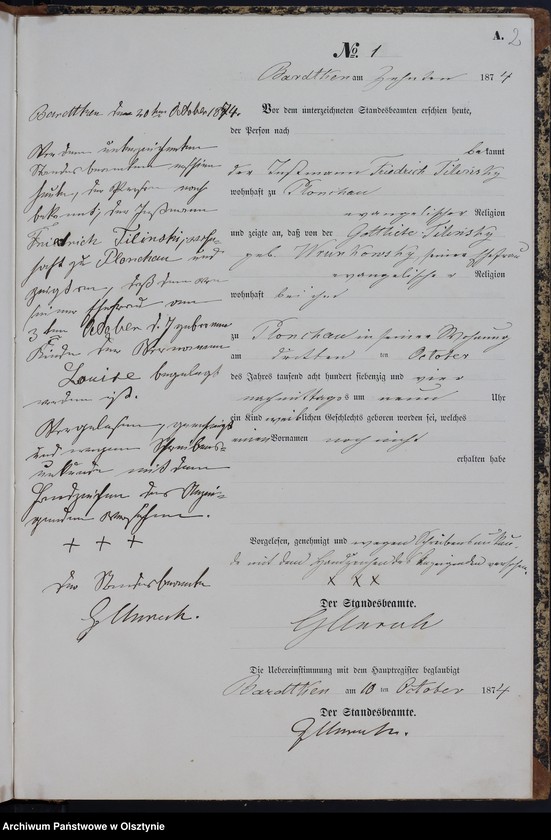 A. 2
No. 1
Bardtken am Zehnten 1874
Vor dem unterzeichneten Standesbeamten erschien heute,
der Person nach
bekannt
der Instmann Friedrich Tilinsky
wohnhaft zu Plonchau
evangelischer Religion
und zeigte an, daß von der Gottliebe Tilinsky
geb. seiner Ehefrau
evangelischer Religion
wohnhaft bei ihm
zu Plonchau in seiner Wohnung
am dritten ten October
des Jahres tausend acht hundert siebenzig und vier
nachmittags um neun Uhr
ein Kind weiblichen Geschlechts geboren worden sei, welches
einen Vornamen noch nicht
erhalten habe
Vorgelesen, genehmigt und wegen Schreibensunkun-
de mit dem Handzeichen des Anzeigenden versehen.
X X X
Der Standesbeamte.
Die Uebereinstimmung mit dem Hauptregister beglaubigt
Bardtken am 10 ten October 1874
Der Standesbeamte.
Bardtken den 20ten October 1874.
Vor dem unterzeichneten
Standesbeamten erschien
heute, der Person nach
bekannt, der Instmann
Friedrich Tilinski, wohn-
haft zu Plonchau und
zeigte an, daß dem von
seiner Ehefrau am
3ten October d. J. geborenen
Kinde der Vorname
Louise beigelegt
worden ist.
Vorgelesen, genehmigt
und wegen Schreibens-
unkunde mit dem
Handzeichen des Anzei-
genden versehen.
+ + +
Der Standesbeamte
Archiwum Państwowe w Olsztynie